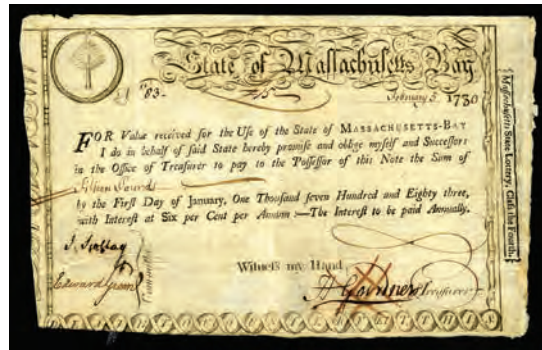 State of Massachusetts Bay
£ 83 - 15
February 5. 1780
FOR Value received for the Use of the State of MASSACHUSETTS-BAY
I do in behalf of said State hereby promise and oblige myself and Successors
in the Office of Treasurer to pay to the Possessor of this Note the Sum of
Fifteen Pounds
by the First Day of January, One Thousand seven Hundred and Eighty three,
with Interest at Six per Cent per Annum :—The Interest to be paid Annually.
Witness my Hand,
Edward Green
Committee
Gardner Treasurer
Massachusetts State Lottery, Class the Fourth.